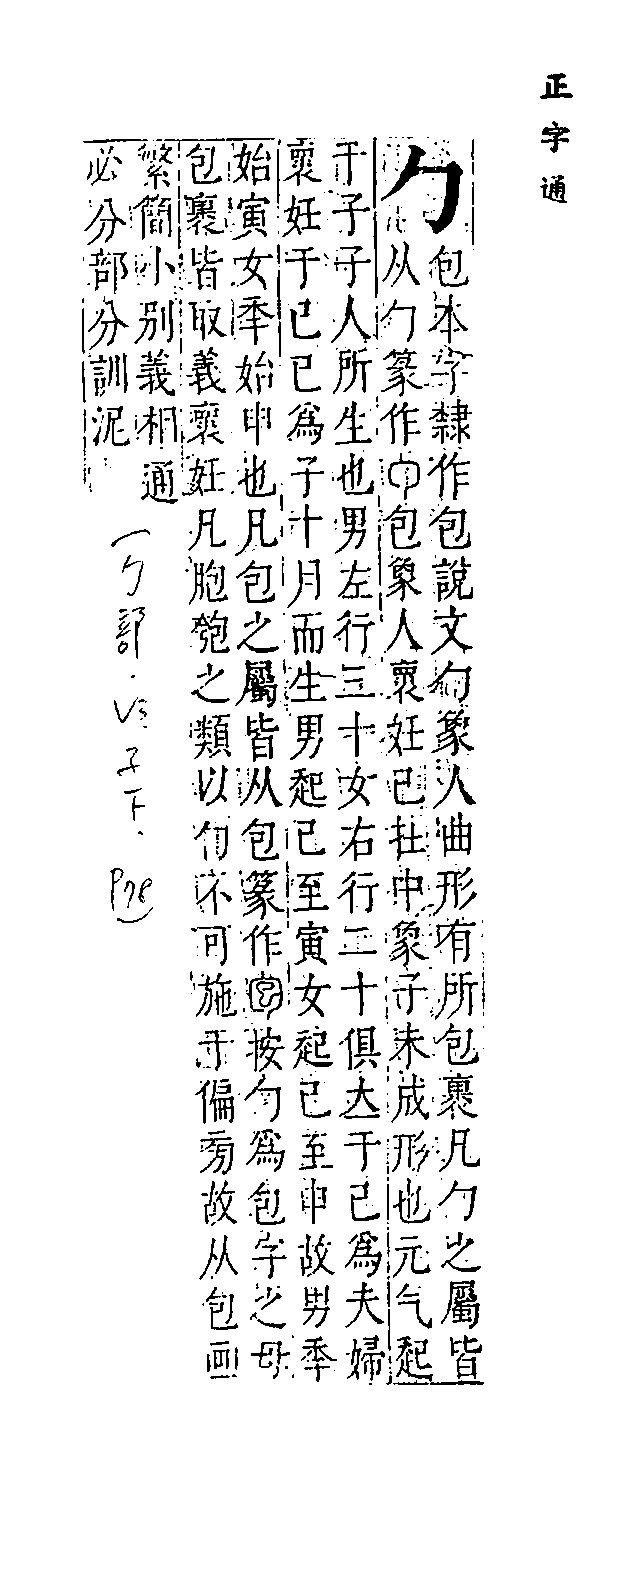 正字通
勹包本字隸作包說文勹象人曲形有所包裹凡勹之屬皆
从勹篆作包象人褱妊巳在中象子未成形也元气起
于子子人所生也男左行三十女右行二十俱立于巳爲夫婦
褱妊于巳巳爲子十月而生男起巳至寅女起巳至申故男秊
始寅女秊始申也凡包之屬皆从包篆作按勹爲包字之母
包裹皆取義褱妊凡胞匏之類以勹不可施于偏旁故从包画
繁簡小別義相通
必分部分訓泥
(勹部.子下.P78)